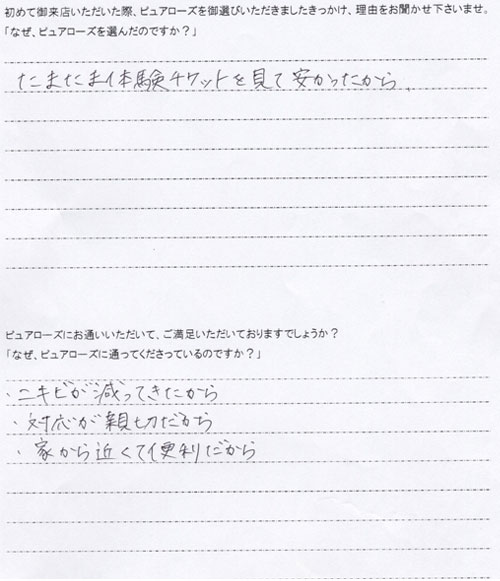 初めて御来店いただいた際、ピュアローズを御選びいただきましたきっかけ、理由をお聞かせ下さいませ。
「なぜ、ピュアローズを選んだのですか？」
たまたま体験チケットを見て安かったから。
ピュアローズにお通いいただいて、ご満足いただいておりますでしょうか？
「なぜ、ピュアローズに通ってくださっているのですか？」
・ニキビが減ってきたから
・対応が親切だから
・家から近くて便利だから